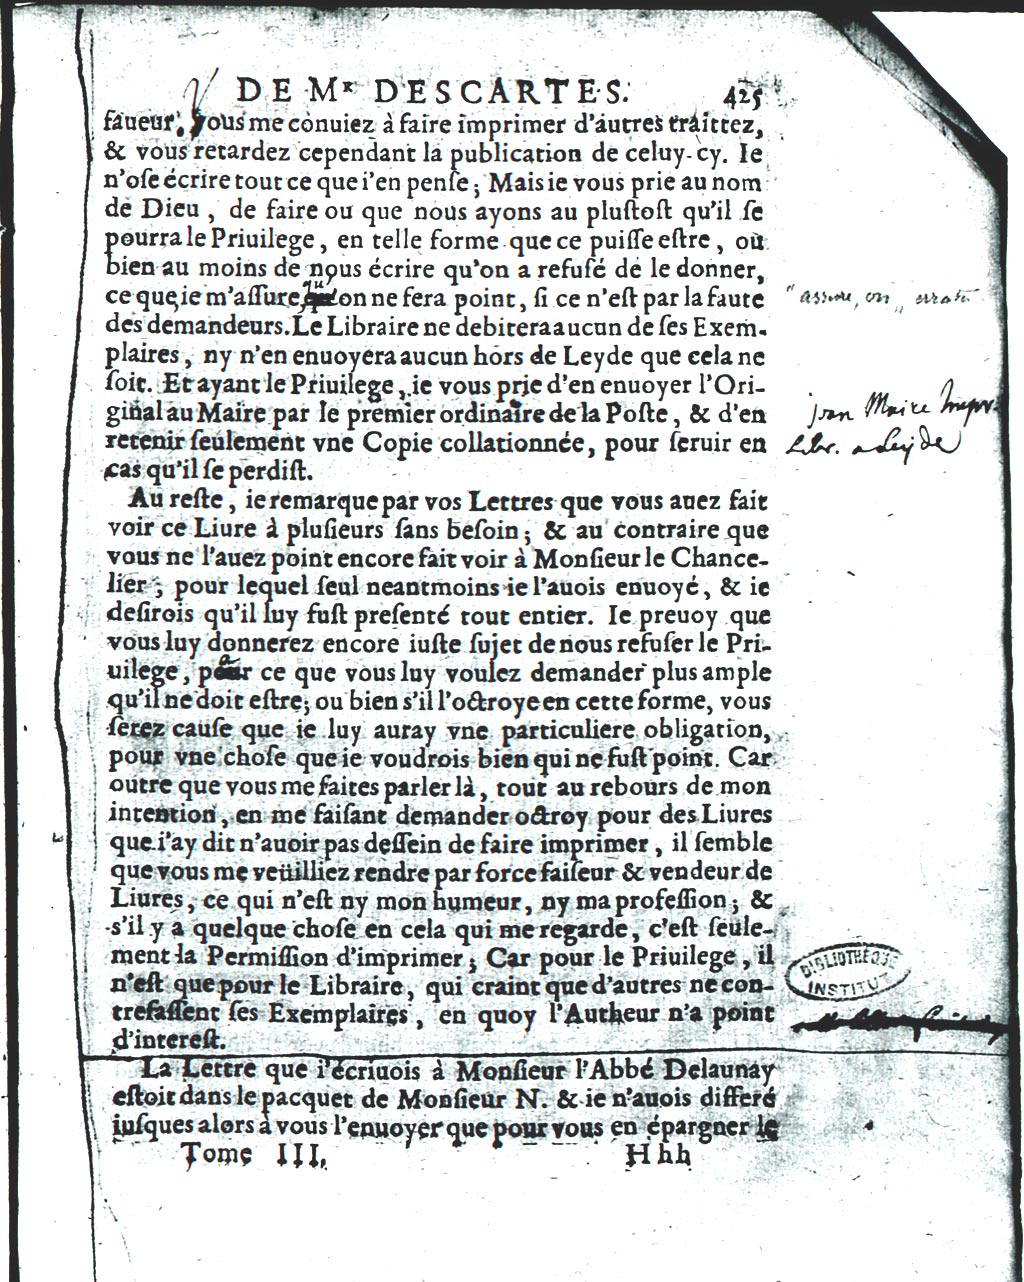 DE Mʳ DESCARTES. 425
faueur, vous me conuiez à faire imprimer d'autres traittez,
& vous retardez cependant la publication de celuy-cy. Ie
n'oſe écrire tout ce que i'en penſe; Mais ie vous prie au nom
de Dieu, de faire ou que nous ayons au pluſtoſt qu'il ſe
pourra le Priuilege, en telle forme que ce puiſſe eſtre, ou
bien au moins de nous écrire qu'on a refuſé de le donner,
ce que ie m'aſſure, qu'on ne fera point, ſi ce n'eſt par la faute
"assure, on „ errata
des demandeurs. Le Libraire ne debitera aucun de ſes Exem-
plaires, ny n'en enuoyera aucun hors de Leyde que cela ne
ſoit. Et ayant le Priuilege, ie vous prie d'en enuoyer l'Ori-
ginal au Maire par le premier ordinaire de la Poſte, & d'en
jean Maire Impr.
retenir ſeulement vne Copie collationnée, pour ſeruir en
Libr. a Leyde
cas qu'il ſe perdiſt.
Au reſte, ie remarque par vos Lettres que vous auez fait
voir ce Liure à pluſieurs ſans beſoin; & au contraire que
vous ne l'auez point encore fait voir à Monſieur le Chance-
lier; pour lequel ſeul neantmoins ie l'auois enuoyé, & ie
deſirois qu'il luy fuſt preſenté tout entier. Ie preuoy que
vous luy donnerez encore iuſte ſujet de nous refuſer le Pri-
uilege, par ce que vous luy voulez demander plus ample
qu'il ne doit eſtre; ou bien s'il l'octroye en cette forme, vous
ſerez cauſe que ie luy auray vne particuliere obligation,
pour vne choſe que ie voudrois bien qui ne fuſt point. Car
outre que vous me faites parler là, tout au rebours de mon
intention, en me faiſant demander octroy pour des Liures
que i'ay dit n'auoir pas deſſein de faire imprimer, il ſemble
que vous me veüilliez rendre par force faiſeur & vendeur de
Liures, ce qui n'eſt ny mon humeur, ny ma profeſſion; &
s'il y a quelque choſe en cela qui me regarde, c'eſt ſeule-
ment la Permiſſion d'imprimer; Car pour le Priuilege, il
n'eſt que pour le Libraire, qui craint que d'autres ne con-
BIBLIOTHÈQUE
INSTITUT
trefaſſent ſes Exemplaires, en quoy l'Autheur n'a point
d'intereſt.
La Lettre que i'écriuois à Monſieur l'Abbé Delaunay
eſtoit dans le pacquet de Monſieur N. & ie n'auois differé
iuſques alors à vous l'enuoyer que pour vous en épargner le
Tome III. Hhh